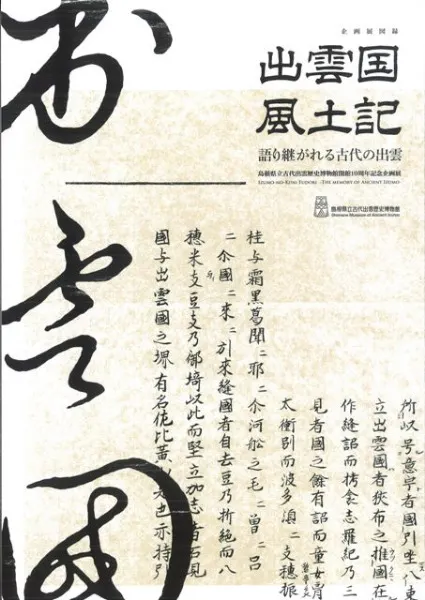 企画展図録
出雲国
風土記
語り継がれる古代の出雲
島根県立古代出雲歴史博物館開館10周年記念企画展
IZUMO-NO-KUNI FUDOKI -THE MEMORY OF ANCIENT IZUMO-
島根県立古代出雲歴史博物館
Shimane Museum of Ancient Izumo
出雲國
所以号意宇者國引坐八束
立出雲國者狭布之推國在
作縫詔而栲衾志羅紀乃三
見者國之餘有詔而童女胷
太衝別而波多湏〻支穂振
桂与霜黒葛聞〻耶〻尒河舩之毛〻曽〻呂
〻尒國〻来〻引来縫國者自去豆乃折絶而八
穂米支豆支乃御埼以此而堅立加志者石見
國与出雲國之堺有名佐比賣 也亦持引